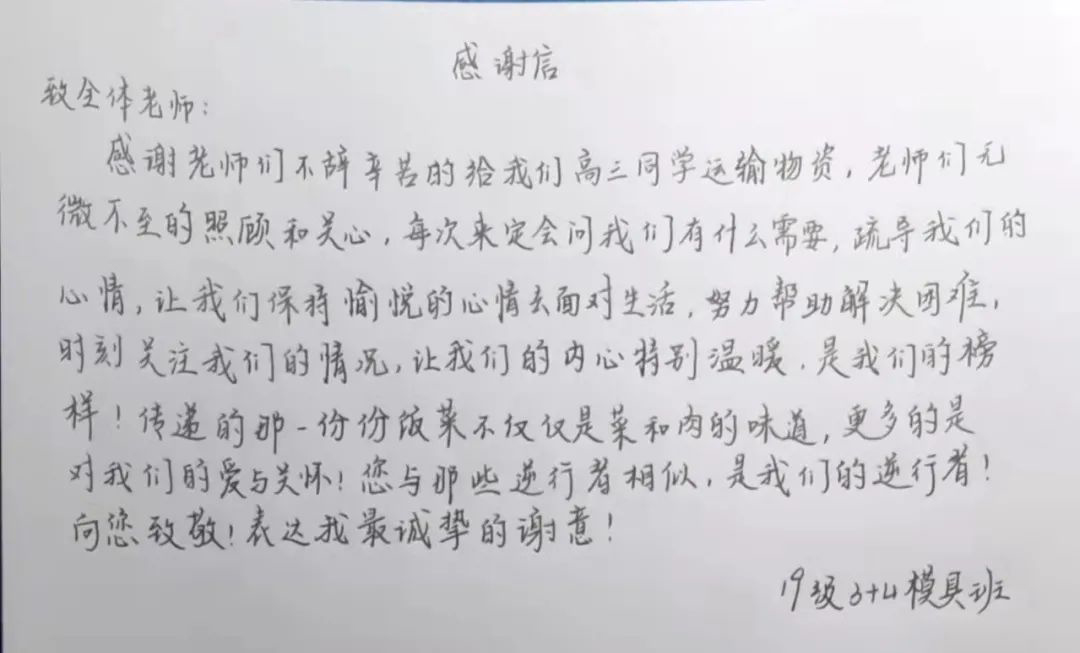 感谢信
致全体老师：
感谢老师们不辞辛苦的给我们高三同学运输物资，老师们无
微不至的照顾和关心，每次来定会问我们有什么需要，疏导我们的
心情，让我们保持愉悦的心情去面对生活，努力帮助解决困难，
时刻关注我们的情况，让我们的内心特别温暖，是我们的榜
样！传递的那一份份饭菜不仅仅是菜和肉的味道，更多的是
对我们的爱与关怀！您与那些逆行者相似，是我们的逆行者！
向您致敬！表达我最诚挚的谢意！
19级3+4模具班